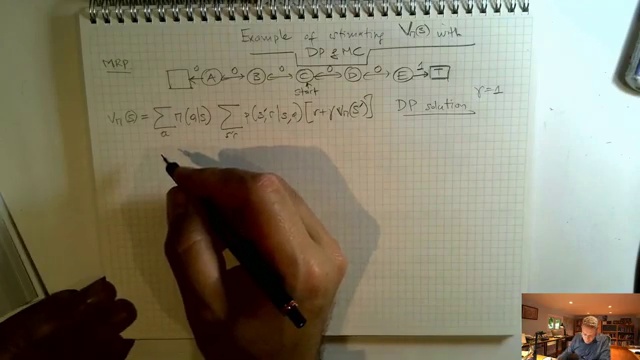 Example of estimating Vπ(s) with
DP & MC
MRP
0 0 0 0 0 1
A B C D E T
start
γ = 1
Vπ(s) = Σ_a π(a|s) Σ_{s',r} p(s',r|s,a) [r + γ Vπ(s')]
DP solution